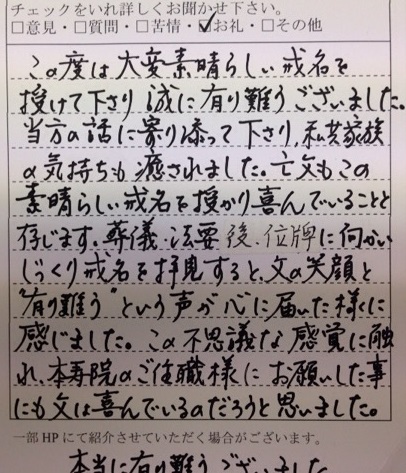 チェックをいれ詳しくお聞かせ下さい。
□意見・□質問・□苦情・☑お礼・□その他
この度は大変素晴らしい戒名を
授けて下さり誠に有り難うございました。
当方の話に寄り添って下さり、私共家族
の気持ちも癒されました。亡父もこの
素晴らしい戒名を授かり喜んでいることと
存じます。葬儀・法要後、位牌に向かい
じっくり戒名を拝見すると、父の笑顔と
"有り難う"という声が心に届いた様に
感じました。この不思議な感覚に触
れ、本寿院のご住職様にお願いした事
にも父は喜んでいるのだろうと思いました。
一部HPにて紹介させていただく場合がございます。
本当に有り難うございました